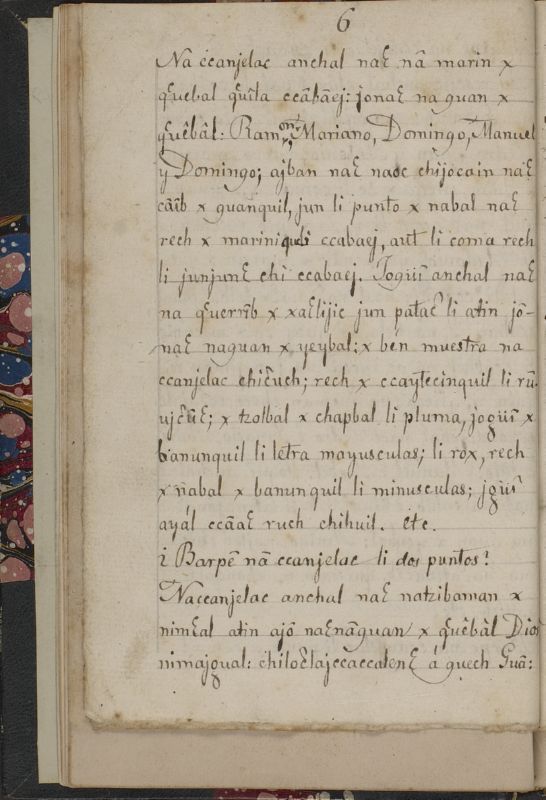 6
Na ccanjelac anchal naɛ nâ marin x
q̃uebal q̃uîla ccâbâej: jonaɛ na guan x
q̃uêbâl: Ramon, Mariano, Domingo, Manuel
y Domingo; ajban naɛ naoc chijocain naɛ
câîb x guanquil, jun li punto x nabal naɛ
rech x mariniquil ccabaej, aut li coma rech
li junjunɛ chi ccabaej. Jogüî anchal naɛ
na q̃uerrîb x xaɛlijic jun pataĉ li atin jô-
naɛ naguan x yeybal: x bén muestra na
ccanjelac chiĉuch; rech x ccaytecinquil li rû-
ujĉûɛ; x tzolbal x chapbal li pluma, jogüî x
banunquil li letra mayusculas; li rôx, rech
x nabal x banunquil li minusculas; jgüî
ayál ccâaɛ ruch chihuil. etc.
¿ Barpê nâ ccanjelac li dos puntos?
Naccanjelac anchal naɛ natzibaman x
nimɛal atin ajô naɛnâguan x q̃uêbâl Dios
nimajgual: chiloĉlajccaccatenɛ á guech Guâ: